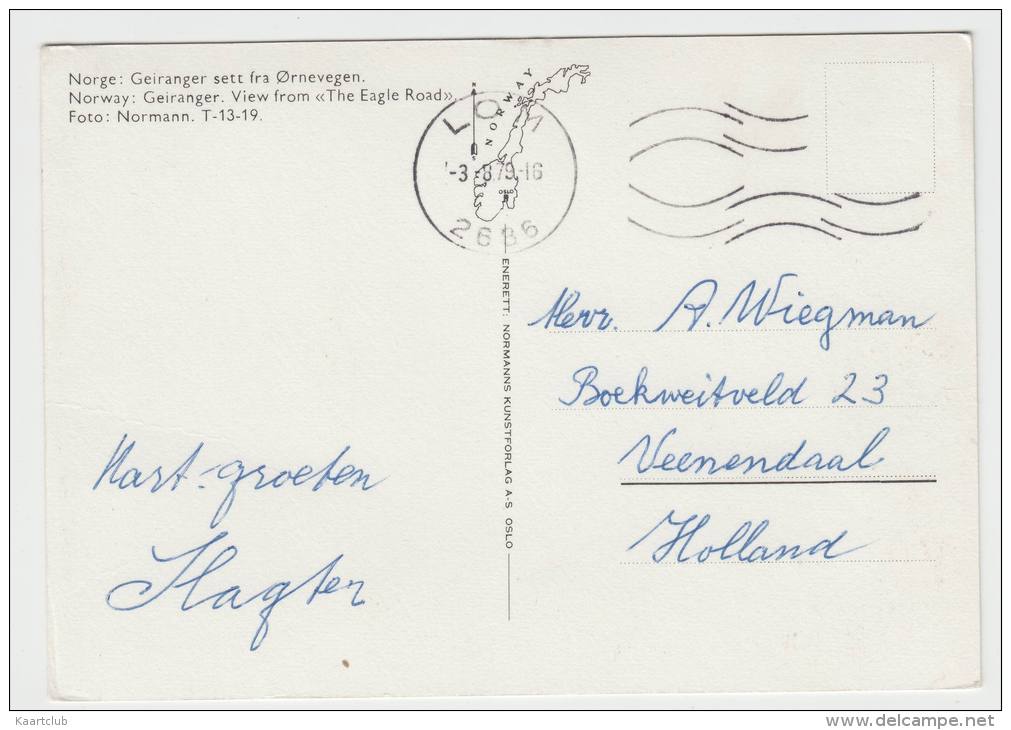 Norge: Geiranger sett fra Ørnevegen.
Norway: Geiranger. View from «The Eagle Road».
Foto: Normann. T-13-19.
NORWAY
OSLO
LOM
-3.-8.79.-16
2686
ENERETT: NORMANNS KUNSTFORLAG A-S OSLO
Herr. A. Wiegman
Boekweitveld 23
Veenendaal
Holland
Hart-groeten
Kaartclub
www.delcampe.net